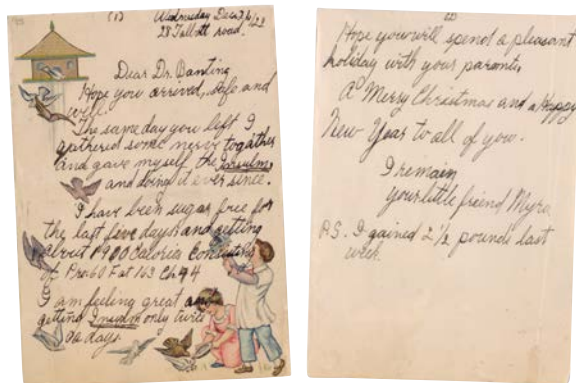 (1)
Wednesday Dec
28 Tallott road.
Dear Dr. Banting
Hope you arrived, safe and
well.
The same day you left I
gathered some nerve togather
and gave myself the Insulin,
and doing it ever since.
I have been sugar free for
the last five days and getting
about 1900 Caloria Consisting
of Pro.60 Fat 163 Ch. 94
I am feeling great and
getting Insulin only twice
a day.
(2)
Hope you will spend a pleasant
holiday with your parents,
A Merry Christmas and a Happy
New Year to all of you.
I remain
your little friend Myra
P.S. I gained 2 1/2 pounds last
week.